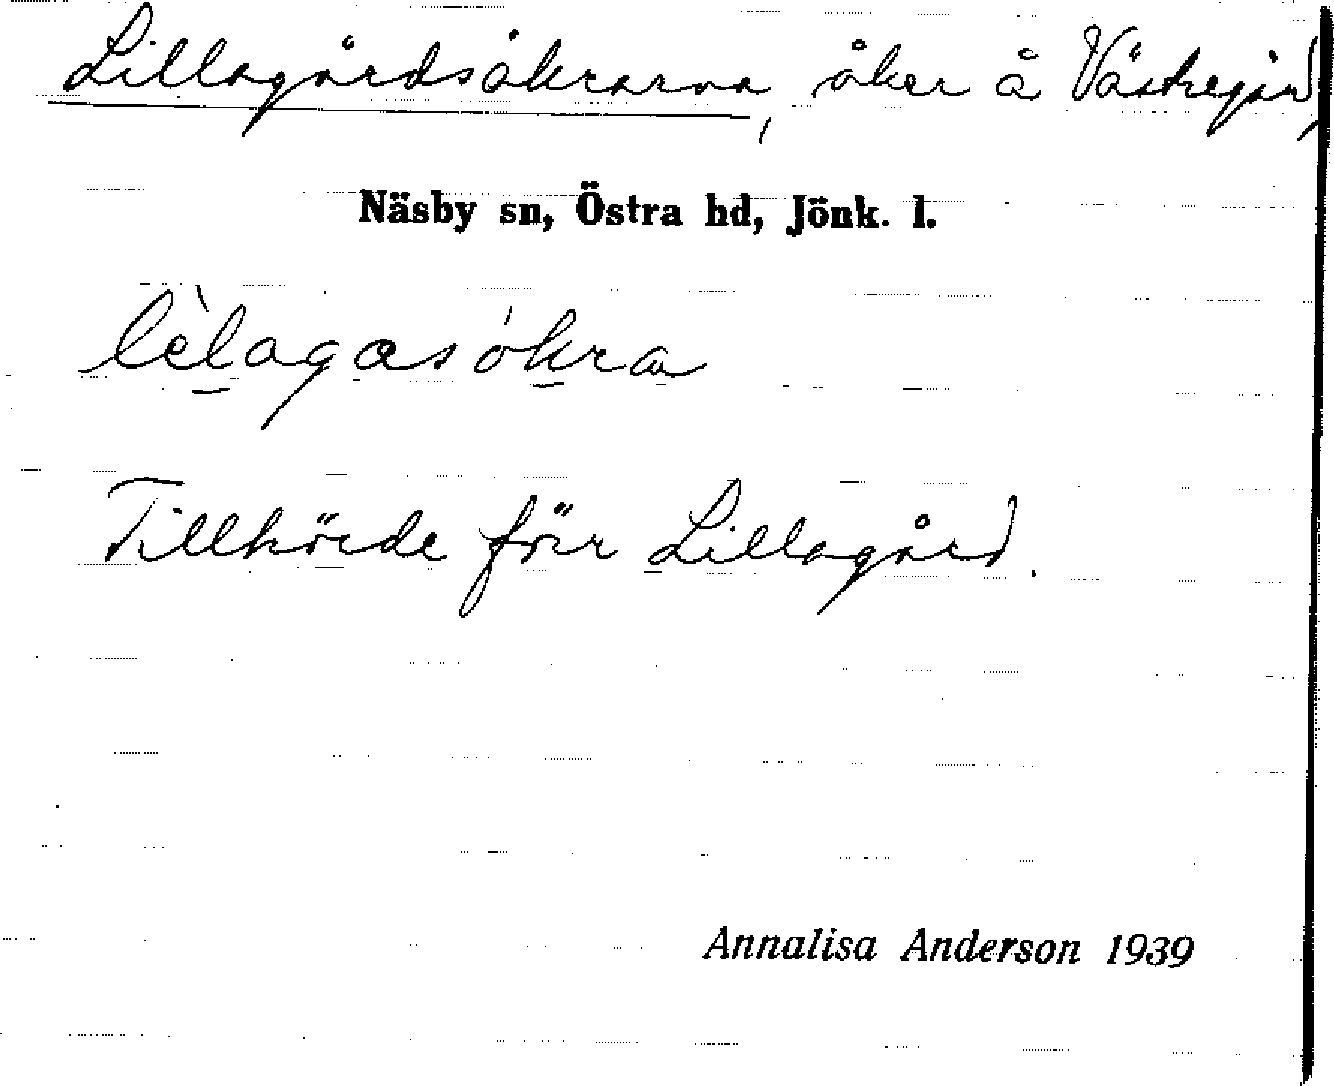 Lillagårdsåkrarna, åker å Västregård,
Näsby sn, Östra hd, Jönk. l.
lèlagasókra
Tillhörde förr Lillagård.
Annalisa Anderson 1939